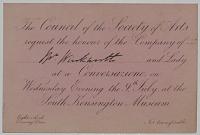 The Council of the Society of Arts
request the honour of the Company of
Mr and Lady
at a Conversazione on
Wednesday Evening the 9th July, at the
South Kensington Museum
Eight o'clock
Evening Dress
Not transferable